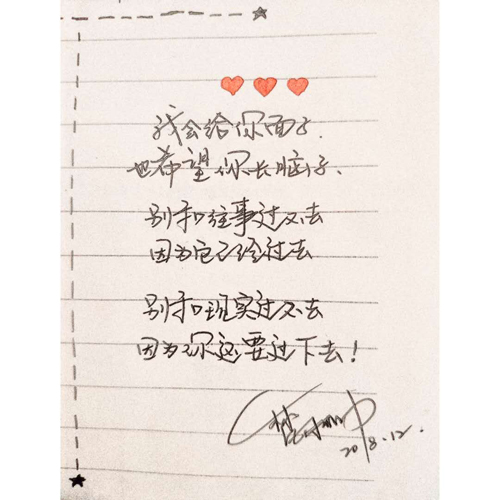 我会给你面子.
也希望你长脑子.
别和往事过不去
因为它已经过去
别和现实过不去
因为你还要过下去!
2018.12.